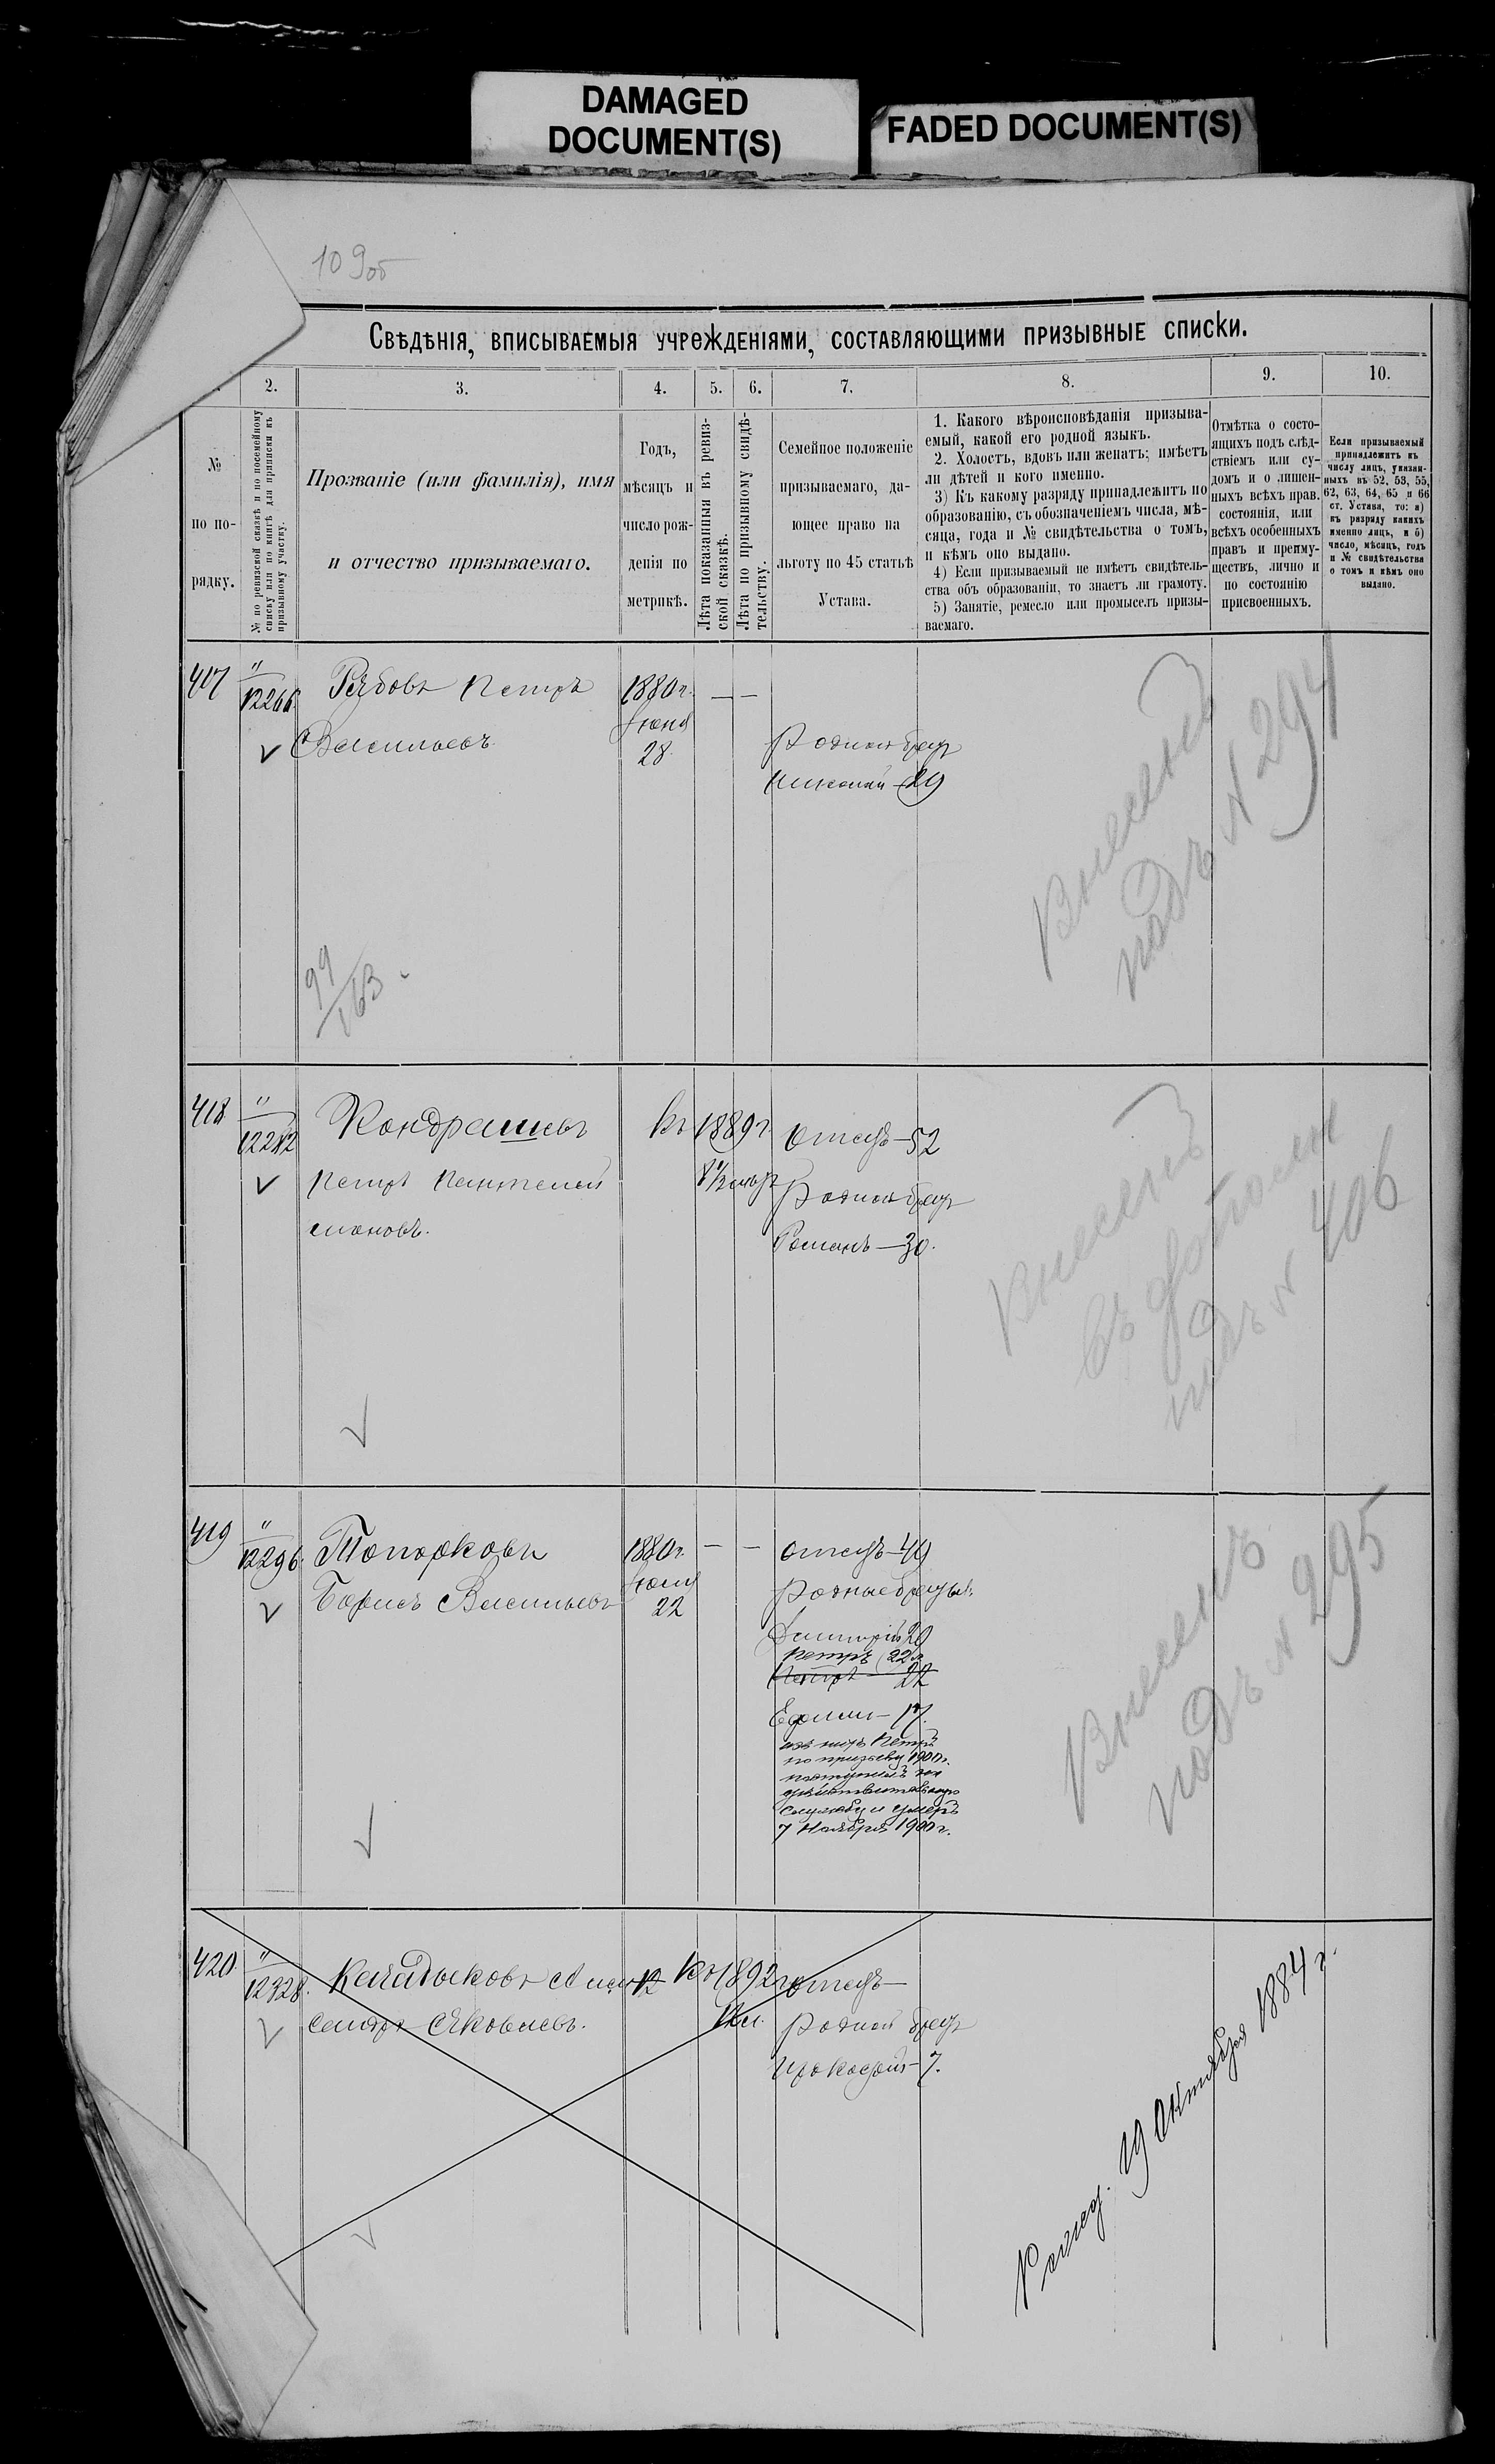 DAMAGED
DOCUMENT(S)
FADED DOCUMENT(S)
109об
Свѣдѣнія, вписываемыя учрежденіями, составляющими призывные списки.
2.
3.
4.
5.
6.
7.
8.
9.
10.
№
по по-
рядку.
№ по ревизской сказкѣ и по посемейному
списку или по книгѣ для приписки къ
призывному участку.
Прозваніе (или фамилія), имя
и отчество призываемаго.
Годъ,
мѣсяцъ и
число рож-
денія по
метрикѣ.
Лѣта показанныя въ ревиз-
ской сказкѣ.
Лѣта по призывному свидѣ-
тельству.
Семейное положеніе
призываемаго, да-
ющее право на
льготу по 45 статьѣ
Устава.
1. Какого вѣроисповѣданія призыва-
емый, какой его родной языкъ.
2. Холостъ, вдовъ или женатъ; имѣетъ
ли дѣтей и кого именно.
3) Къ какому разряду принадлежитъ по
образованію, съ обозначеніемъ числа, мѣ-
сяца, года и № свидѣтельства о томъ,
и кѣмъ оно выдано.
4) Если призываемый не имѣетъ свидѣтель-
ства объ образованіи, то знаетъ ли грамоту.
5) Занятіе, ремесло или промыселъ призы-
ваемаго.
Отмѣтка о состо-
ящихъ подъ слѣд-
ствіемъ или су-
домъ и о лишен-
ныхъ всѣхъ прав.
состоянія, или
всѣхъ особенныхъ
правъ и преиму-
ществъ, лично и
по состоянію
присвоенныхъ.
Если призываемый
принадлежитъ къ
числу лицъ, указан-
ныхъ въ 52, 53, 55,
62, 63, 64, 65 и 66
ст. Устава, то: а)
къ разряду какихъ
именно лицъ, и б)
число, мѣсяцъ, годъ
и № свидѣтельства
о томъ и кѣмъ оно
выдано.
417
"
12266
Рябовъ Петръ
Васильевъ.
1880 г.
Іюня
28.
— —
Родной братъ
Николай — 29
Внесенъ
подъ № 294
99
163
418
"
12282
Кондрашевъ
Петръ Пантелей
моновъ.
Въ 1889 г.
8 1/2
Отецъ — 52
Родной братъ
Романъ — 30.
Внесенъ
подъ № 406
419
"
12296.
Топорковъ
Борисъ Васильевъ
1880 г.
22
— —
Отецъ — 49
Родные братья:
Дмитрій 29
Петръ 22
Петръ 22
Ефимъ — 17.
изъ нихъ Петръ
по призыву 1900 г.
поступилъ на
дѣйствительную
службу и умеръ
7 Ноября 1900 г.
Внесенъ
подъ № 295
420
"
12328.
Алек
сандръ Яковлевъ.
12
Въ 1892 г.
12 л.
Отецъ —
Родной братъ
Прокофій — 7.
Рожд. 19 Октября 1884 г.